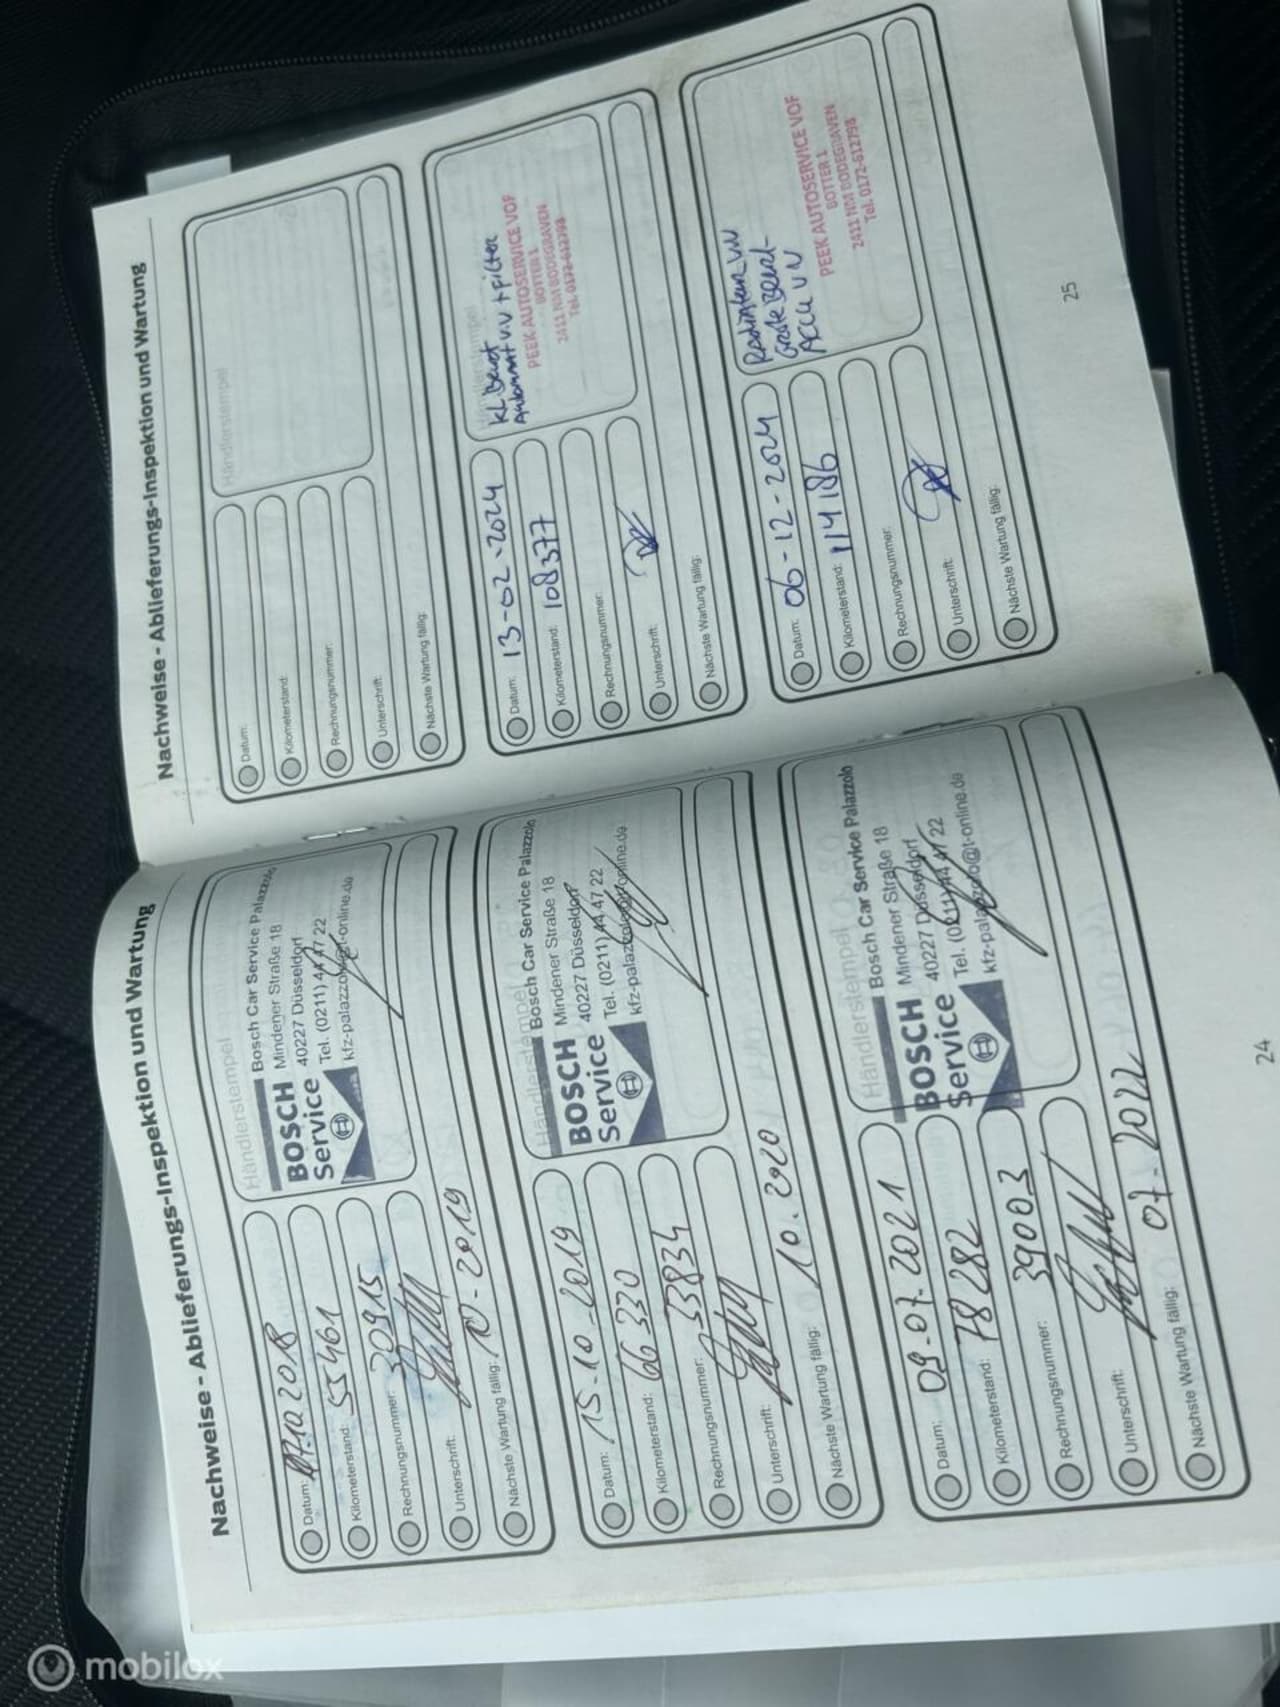 Nachweise - Ablieferungs-Inspektion und Wartung
Händlerstempel
BOSCH
Service
Bosch Car Service Palazzolo
Mindener Straße 18
40227 Düsseldorf
Tel. (0211) 44 47 22
kfz-palazzolo@t-online.de
Datum: 10 2018
Kilometerstand: 55461
Rechnungsnummer: 30915
Unterschrift:
Nächste Wartung fällig: 10-2019
Händlerstempel
BOSCH
Service
Bosch Car Service Palazzolo
Mindener Straße 18
40227 Düsseldorf
Tel. (0211) 44 47 22
kfz-palazzolo@t-online.de
Datum: 15-10-2019
Kilometerstand: 66320
Rechnungsnummer: 33834
Unterschrift:
Nächste Wartung fällig: 10.2020
Händlerstempel
BOSCH
Service
Bosch Car Service Palazzolo
Mindener Straße 18
40227 Düsseldorf
Tel. (0211) 44 47 22
kfz-palazzolo@t-online.de
Datum: 09-07-2021
Kilometerstand: 78282
Rechnungsnummer: 39003
Unterschrift:
Nächste Wartung fällig: 07-2022
24
Nachweise - Ablieferungs-Inspektion und Wartung
Händlerstempel
Datum:
Kilometerstand:
Rechnungsnummer:
Unterschrift:
Nächste Wartung fällig:
Händlerstempel
KL Beurt
Automaat VV + filter
PEEK AUTOSERVICE VOF
BOTTER 1
2411 NM BODEGRAVEN
Tel. 0172-612798
Datum: 13-02-2024
Kilometerstand: 108377
Rechnungsnummer:
Unterschrift:
Nächste Wartung fällig:
VN
Grote Beurt
Accu VN
PEEK AUTOSERVICE VOF
BOTTER 1
2411 NM BODEGRAVEN
Tel. 0172-612798
Datum: 06-12-2024
Kilometerstand: 114186
Rechnungsnummer:
Unterschrift:
Nächste Wartung fällig:
25
mobilox